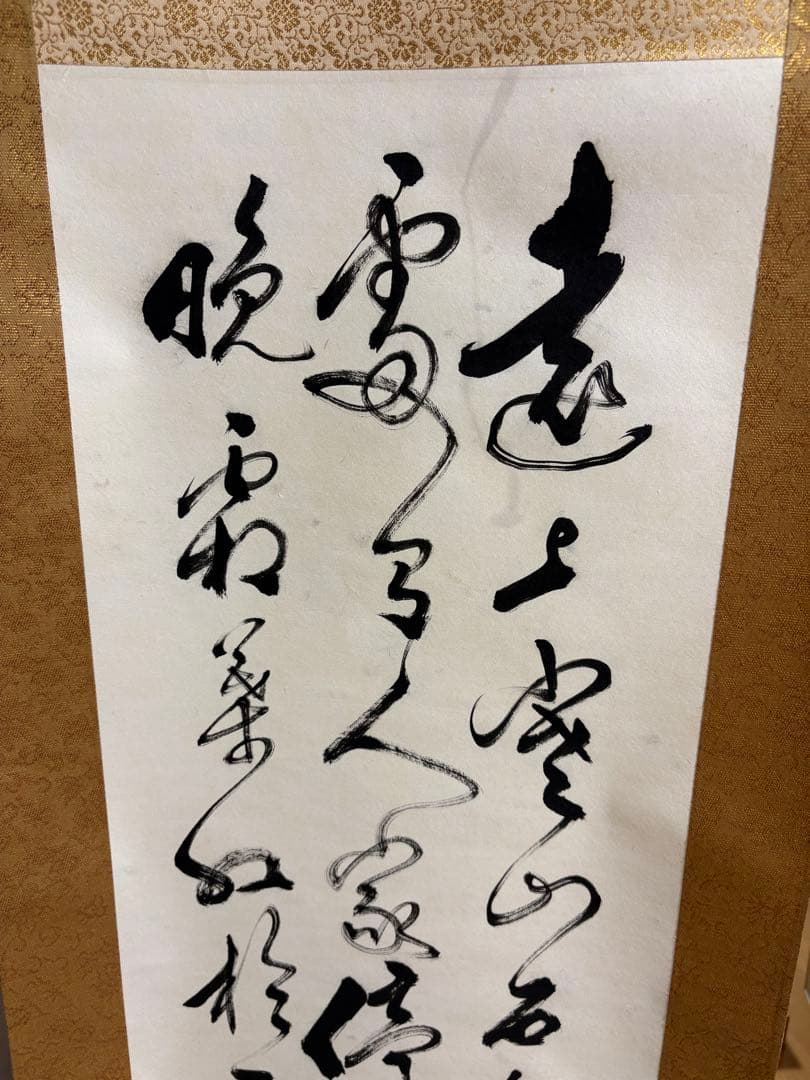 遠上寒山石
處有人家停
晚霜葉紅於